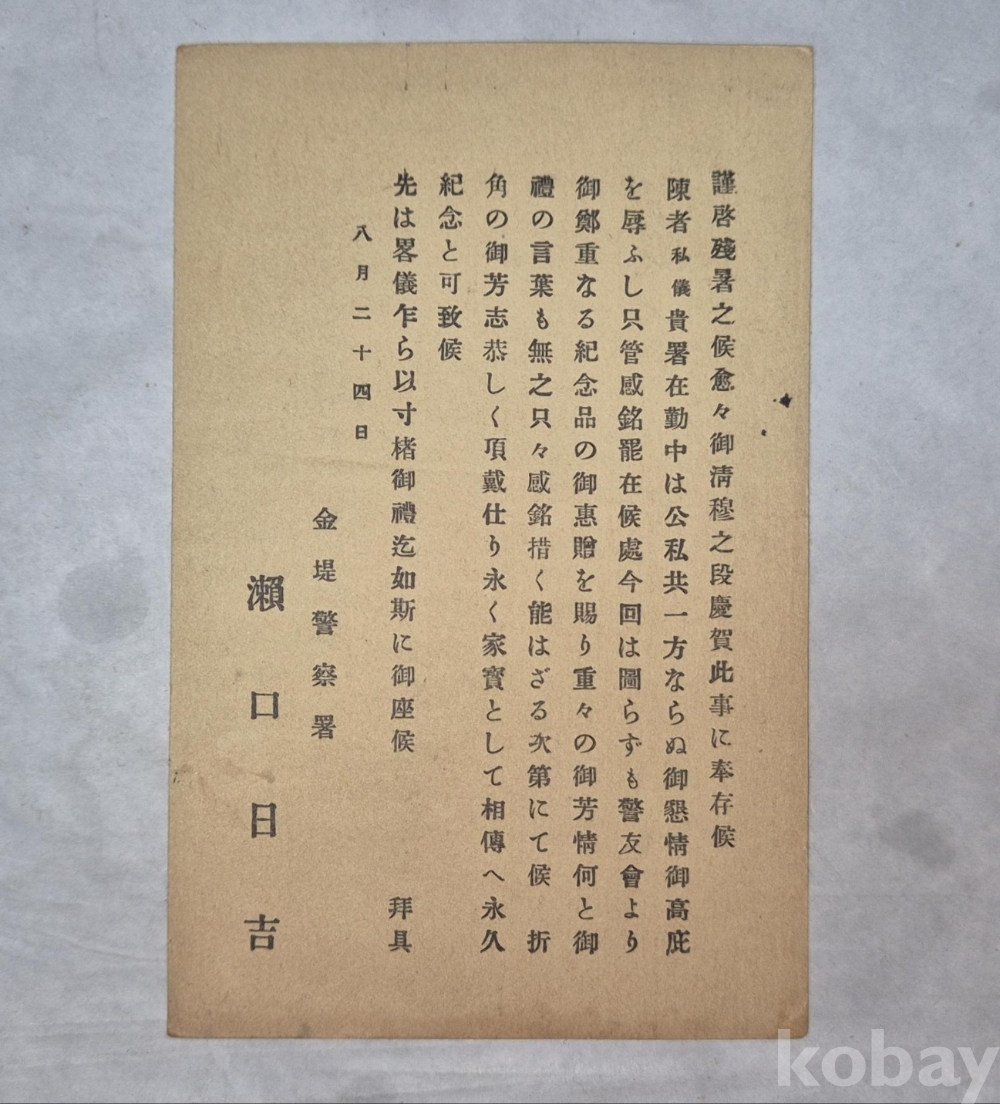 謹啓殘暑之候愈々御淸穆之段慶賀此事に奉存候
陳者私儀貴署在勤中は公私共一方ならぬ御懇情御高庇
を辱ふし只管感銘罷在候處今回は圖らずも警友會より
御鄭重なる紀念品の御惠贈を賜り重々の御芳情何と御
禮の言葉も無之只々感銘措く能はざる次第にて候 折
角の御芳志恭しく項戴仕り永く家寶として相傳へ永久
紀念と可致候
先は畧儀乍ら以寸楮御禮迄如斯に御座候 拜具
八月二十四日
金堤警察署
瀨口日吉
kobay